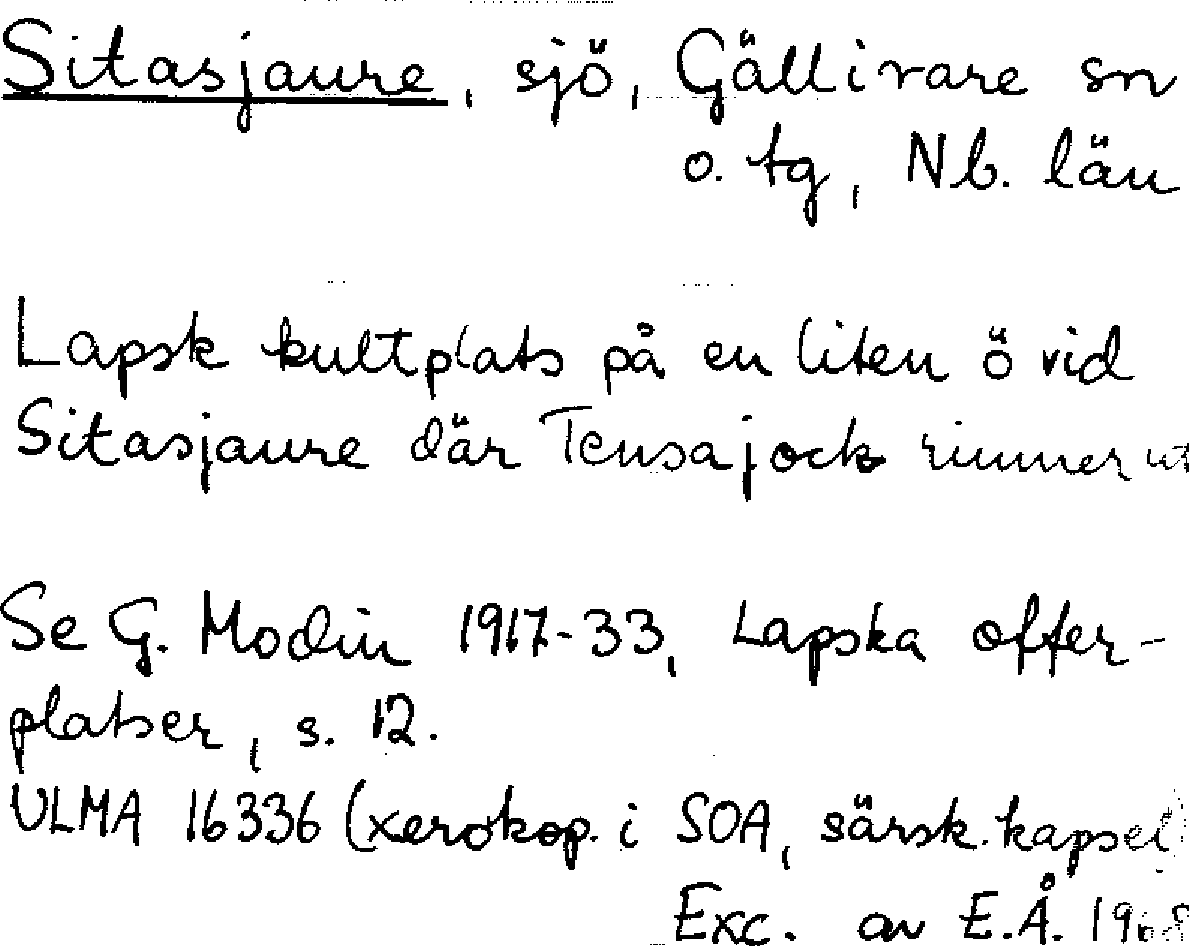 Sitasjaure, sjö, Gällivare sn
o. tg, Nb. län
Lapsk kultplats på en liten ö vid
Sitasjaure där Tensajock rinner ut
Se G. Modin 1917-33, Lapska offer-
platser, s. 12.
ULMA 16336 (xerokop. i SOA, särsk. kapsel)
Exc. av E.Å. 1968